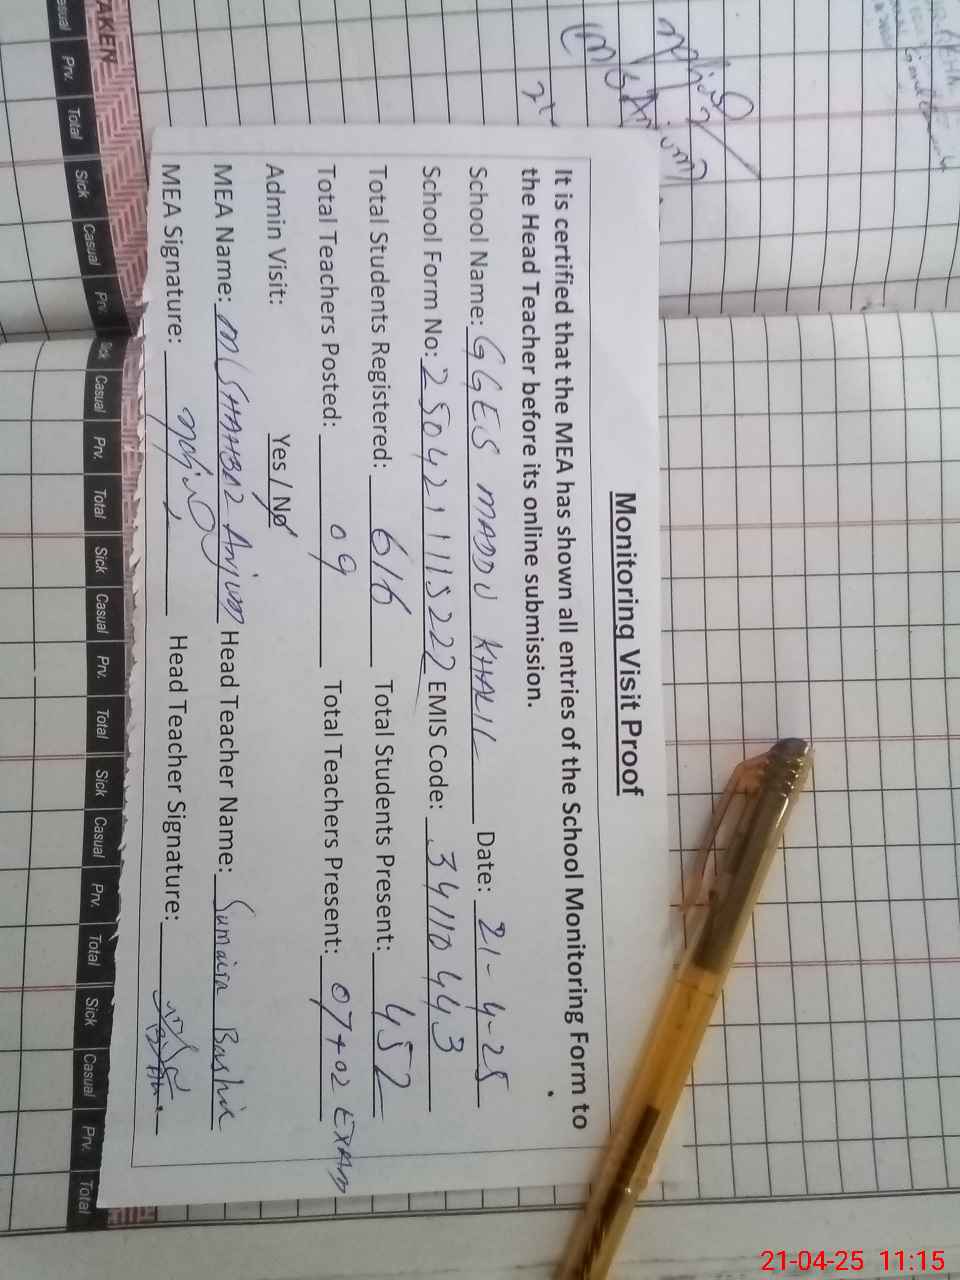 Monitoring Visit Proof
It is certified that the MEA has shown all entries of the School Monitoring Form to
the Head Teacher before its online submission.
School Name: GGES MADDU KHALIL Date: 21-4-25
School Form No: 2504211115222 EMIS Code: 34110443
Total Students Registered: 616 Total Students Present: 452
Total Teachers Posted: 09 Total Teachers Present: 07+02 EXAM
Admin Visit: Yes / No
MEA Name: M SHAHBAZ Anjum Head Teacher Name: Sumaira Bashir
MEA Signature: Head Teacher Signature:
TAKEN
Casual Prv. Total Sick Casual Prv.
Sick Casual Prv. Total Sick Casual Prv. Total Sick Casual Prv. Total Sick Casual Prv. Total
21-04-25 11:15